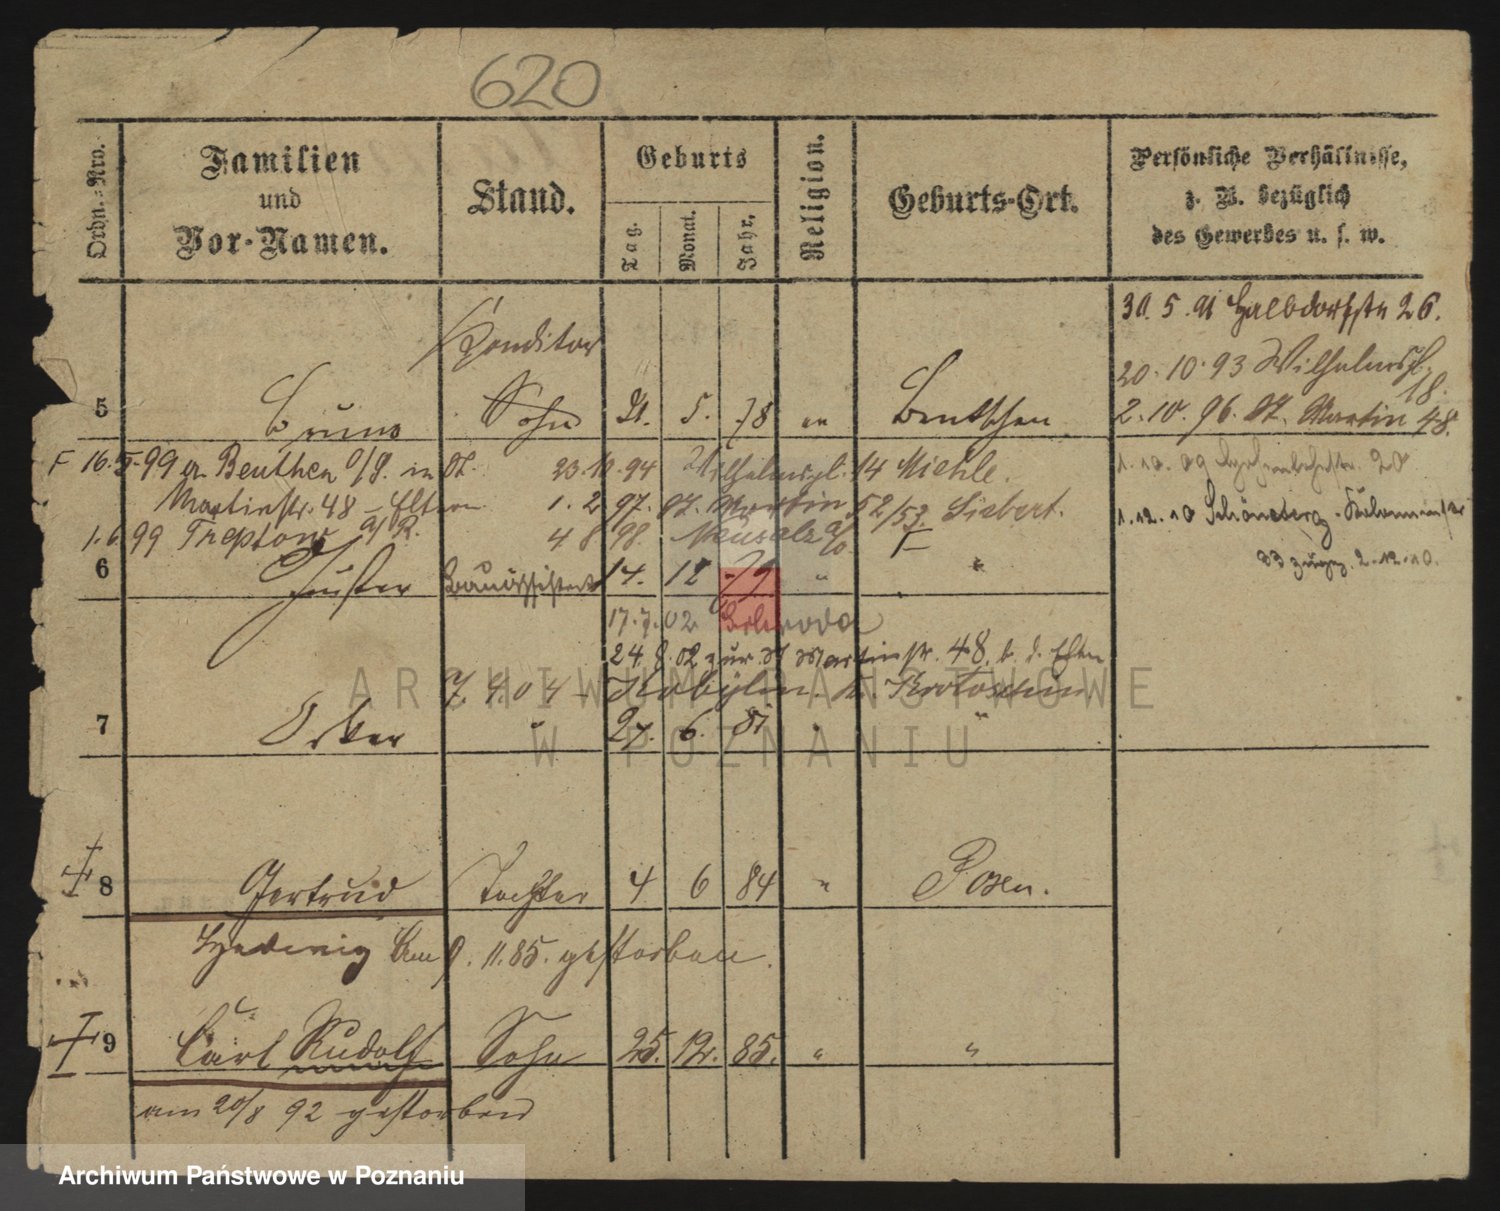 620
Ordn.-Nro.
Familien
und
Vor-Namen.
Stand.
Geburts
Tag.
Monat.
Jahr.
Religion.
Geburts-Ort.
Persönliche Verhältnisse,
z. B. bezüglich
des Gewerbes u. s. w.
30. 5. 91 Halbdorfstr 26.
Konditor
20. 10. 93 Wilhelmspl. 18.
5 Bruno Sohn 21. 5. 78 Bentschen
2. 10. 96. St. Martin 48.
16. 5. 99 Beuthen O/S. in St. 23. 10. 94 Wilhelmspl. 14 Miehle.
1. 10. 09 20
Martinstr. 48 - Eltern 1. 2 97. St. Martin 52/53. Siebert.
1. 12. 10 Schöneberg
1. 6 99 Treptow a/R. 4 8 98. Neusalz a/O
33 2. 12. 10.
6 Gustav Bauassistent 14. 12 79 "
17. 7. 02
24. 8. 02 zur. St Martinstr. 48. b. d. Eltern
7. 4. 04 - Kobylin. Kr. Krotoschin
7 Oskar " 27. 6. 81 " "
8 Gertrud Tochter 4 6 84 " Posen.
Hedwig am 9. 11. 85. gestorben.
9 Carl Rudolf Sohn 25. 12. 85. " "
am 20/8 92 gestorben
ARCHIWUM PAŃSTWOWE
W POZNANIU
Archiwum Państwowe w Poznaniu